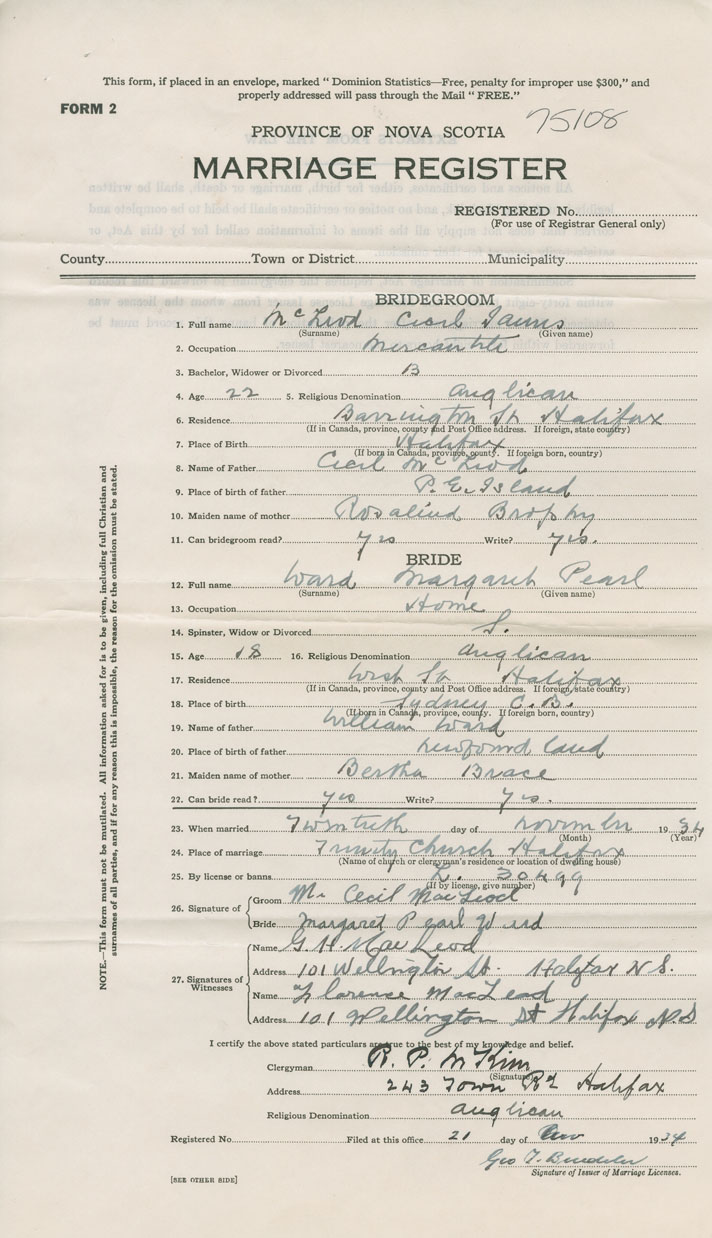 This form, if placed in an envelope, marked “ Dominion Statistics—Free, penalty for improper use $300,” and
properly addressed will pass through the Mail “ FREE.”
FORM 2
75108
PROVINCE OF NOVA SCOTIA
MARRIAGE REGISTER
REGISTERED No.
(For use of Registrar General only)
County Town or District Municipality
BRIDEGROOM
1. Full name McLeod Cecil James
(Surname) (Given name)
2. Occupation Mercantile
3. Bachelor, Widower or Divorced B
4. Age 22 5. Religious Denomination Anglican
6. Residence Barrington St Halifax
(If in Canada, province, county and Post Office address. If foreign, state country)
7. Place of Birth Halifax
(If born in Canada, province, county. If foreign born, country)
8. Name of Father Cecil McLeod
9. Place of birth of father P. E. Island
10. Maiden name of mother Rosalind Brophy
11. Can bridegroom read? yes Write? yes.
BRIDE
12. Full name Ward Margaret Pearl
(Surname) (Given name)
13. Occupation Home
14. Spinster, Widow or Divorced S.
15. Age 18 16. Religious Denomination Anglican
17. Residence West St Halifax
(If in Canada, province, county and Post Office address. If foreign, state country)
18. Place of birth Sydney C. B.
(If born in Canada, province, county. If foreign born, country)
19. Name of father William Ward
20. Place of birth of father Newfoundland
21. Maiden name of mother Bertha Brace
22. Can bride read? yes Write? yes.
23. When married Twentieth day of November 1934
(Month) (Year)
24. Place of marriage Trinity Church Halifax
(Name of church or clergyman's residence or location of dwelling house)
25. By license or banns L. 30499
(If by license, give number)
26. Signature of Groom Mr Cecil MacLeod
Bride Margaret Pearl Ward
27. Signatures of Witnesses Name G. H. MacLeod
Address 101 Wellington St. Halifax N S.
Name Florence MacLeod
Address 101 Wellington St Halifax N.S
I certify the above stated particulars are true to the best of my knowledge and belief.
Clergyman R. P. McKim
(Signature)
Address 243 Town Rd Halifax
Religious Denomination Anglican
Registered No. Filed at this office 21 day of 1934
Geo T.
Signature of Issuer of Marriage Licenses.
[SEE OTHER SIDE]
NOTE.—This form must not be mutilated. All information asked for is to be given, including full Christian and
surnames of all parties, and if for any reason this is impossible, the reason for the omission must be stated.